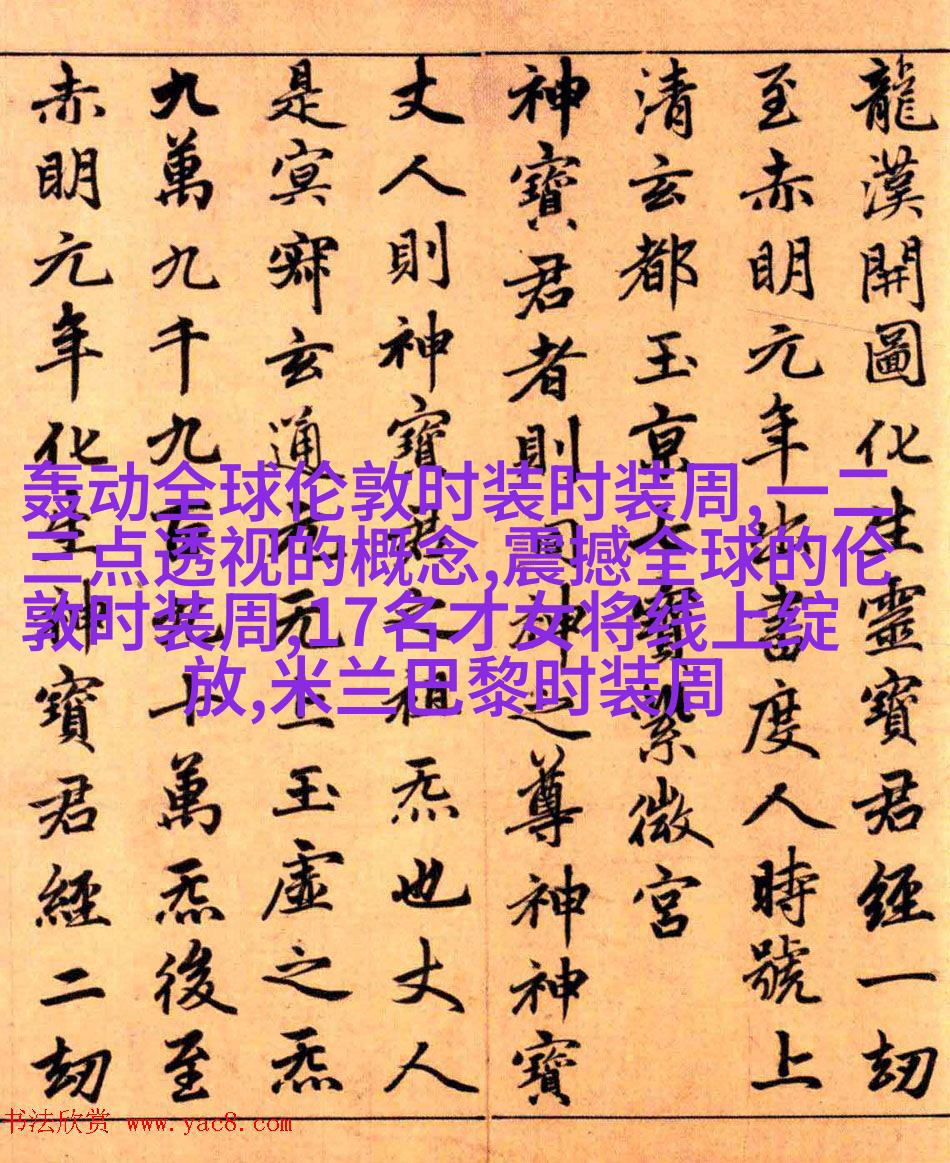 龍漢開圖化生靈寶君經一劫
至赤明元年出書度人時號上
清玄都玉京七寶紫微宮
神寶君者則洞神之尊神神寶
丈人則神寶君之祖炁也丈人
是冥寂玄通元无上玉虛之炁
九萬九千九百九十萬炁後至
赤明元年化生神寶君經二劫
轰动全球伦敦时装时装周,一二
三点透视的概念,震撼全球的伦
敦时装周,17名才女将线上绽
放,米兰巴黎时装周
书法欣赏 www.yac8.com